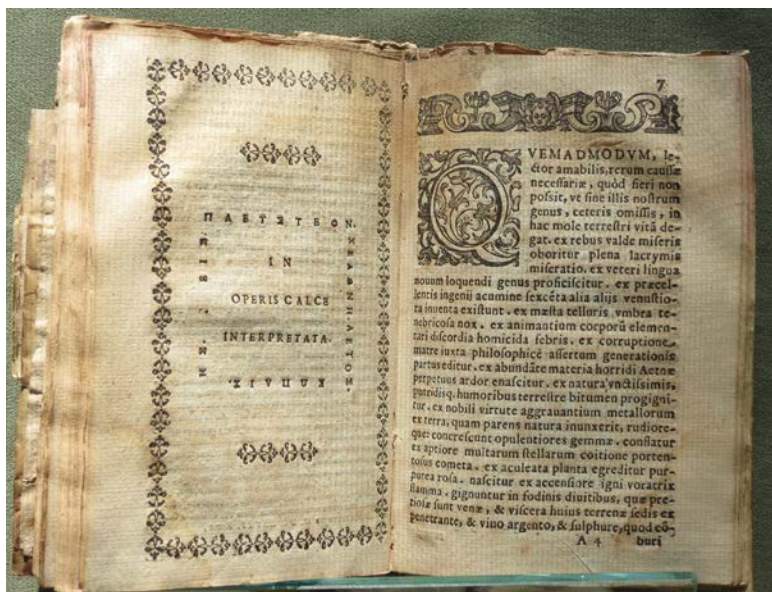 IN
OPERIS CALCE
INTERPRETATA.
7
QVEMADMODVM, le-
ctor amabilis, rerum cauſſæ
neceſſariæ, quòd fieri non
poſsit, vt ſine illis noſtrum
genus, ceteris omiſsis, in
hac mole terreſtri vitã de-
gat. ex rebus valde miſeris
oboritur plena lacrymis
miſeratio. ex veteri lingua
nouum loquendi genus proficiſcitur. ex præcel-
lentis ingenij acumine ſexcẽta alia alijs venuſtio-
ra inuenta exiſtunt. ex mæſta telluris vmbra te-
nebricoſa nox. ex animantium corporũ elemen-
tari diſcordia homicida febris. ex corruptione,
matre iuxta philoſophicè aſſertum generationis
partus editur. ex abundãte materia horridi Aetnæ
perpetuus ardor enaſcitur. ex natura vnctiſsimis,
putridisq. humoribus terreſtre bitumen progigni-
tur. ex nobili virtute aggrauantium metallorum
ex terra, quam parens natura inunxerit, rudiore-
que: concreſcunt opulentiores gemmæ. conflatur
ex aptiore multarum ſtellarum coitione porten-
toſus cometa. ex aculeata planta egreditur pur-
purea roſa. naſcitur ex accenſiore igni voratrix
flamma. gignuntur in fodinis diuitibus, quæ pre-
tioſæ ſunt venæ, & viſcera huius terrenæ ſedis ex
penetrante, & viuo argento, & ſulphure, quod cõ-
A 4 buri